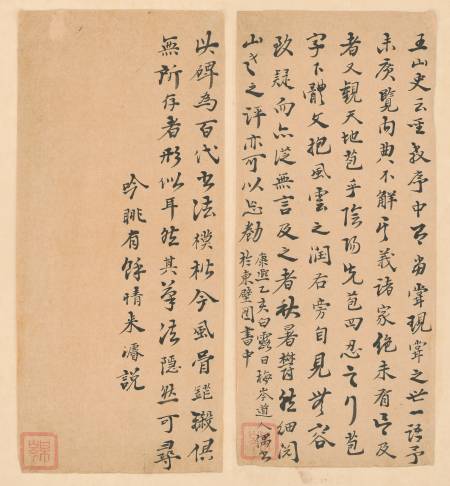 王山史云聖教序中有當常現常之世一語予
未廣覽內典不解其義諸家絕未有言及
者又觀天地苞乎陰陽先苞四忍之行苞
字下體文抱風雲之潤右旁自見其容
致疑而亦從無言及之者秋暑然細閱
山史之評亦可以忘
康熙乙亥白露日梅岑道人偶書
於東壁圖書中
此碑為百代書法模楷今風骨俱
無所存者形似耳然其筆法隱然可尋
吟眺有餘情來濬說